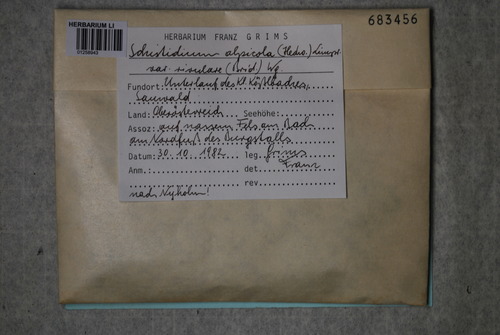 HERBARIUM LI
01256943
683456
HERBARIUM FRANZ GRIMS
Schistidium alpicola (Hedw.) Limpr.
var. rivulare (Brid.) Wg.
Fundort: Unterlauf des Kl. Kößlbaches,
Sauwald
Land: Oberösterreich Seehöhe:
Assoz: auf nassem Fels am Bach
am Nordfuß des Burgstalls
Datum: 30. 10. 1982 leg. Grims
Anm. det. Franz
rev.
nach Nyholm!